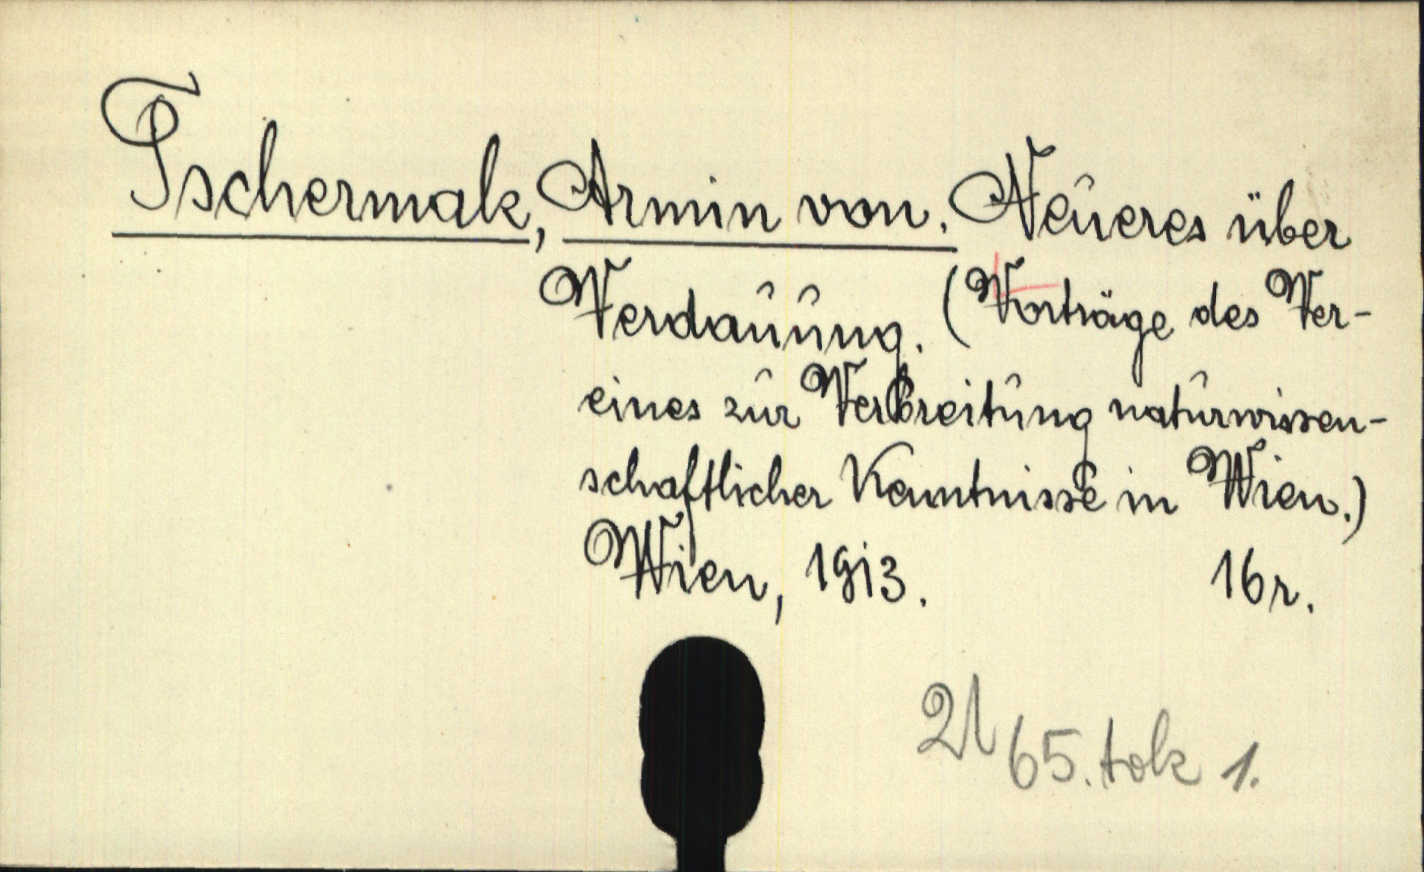 Tschermak, Armin von. Neueres über
Verdauung. (Vorträge des Ver-
eines zur Verbreitung naturwissen-
schaftlicher Kenntnisse in Wien.)
Wien, 1913. 16r.
21 65. tok 1.